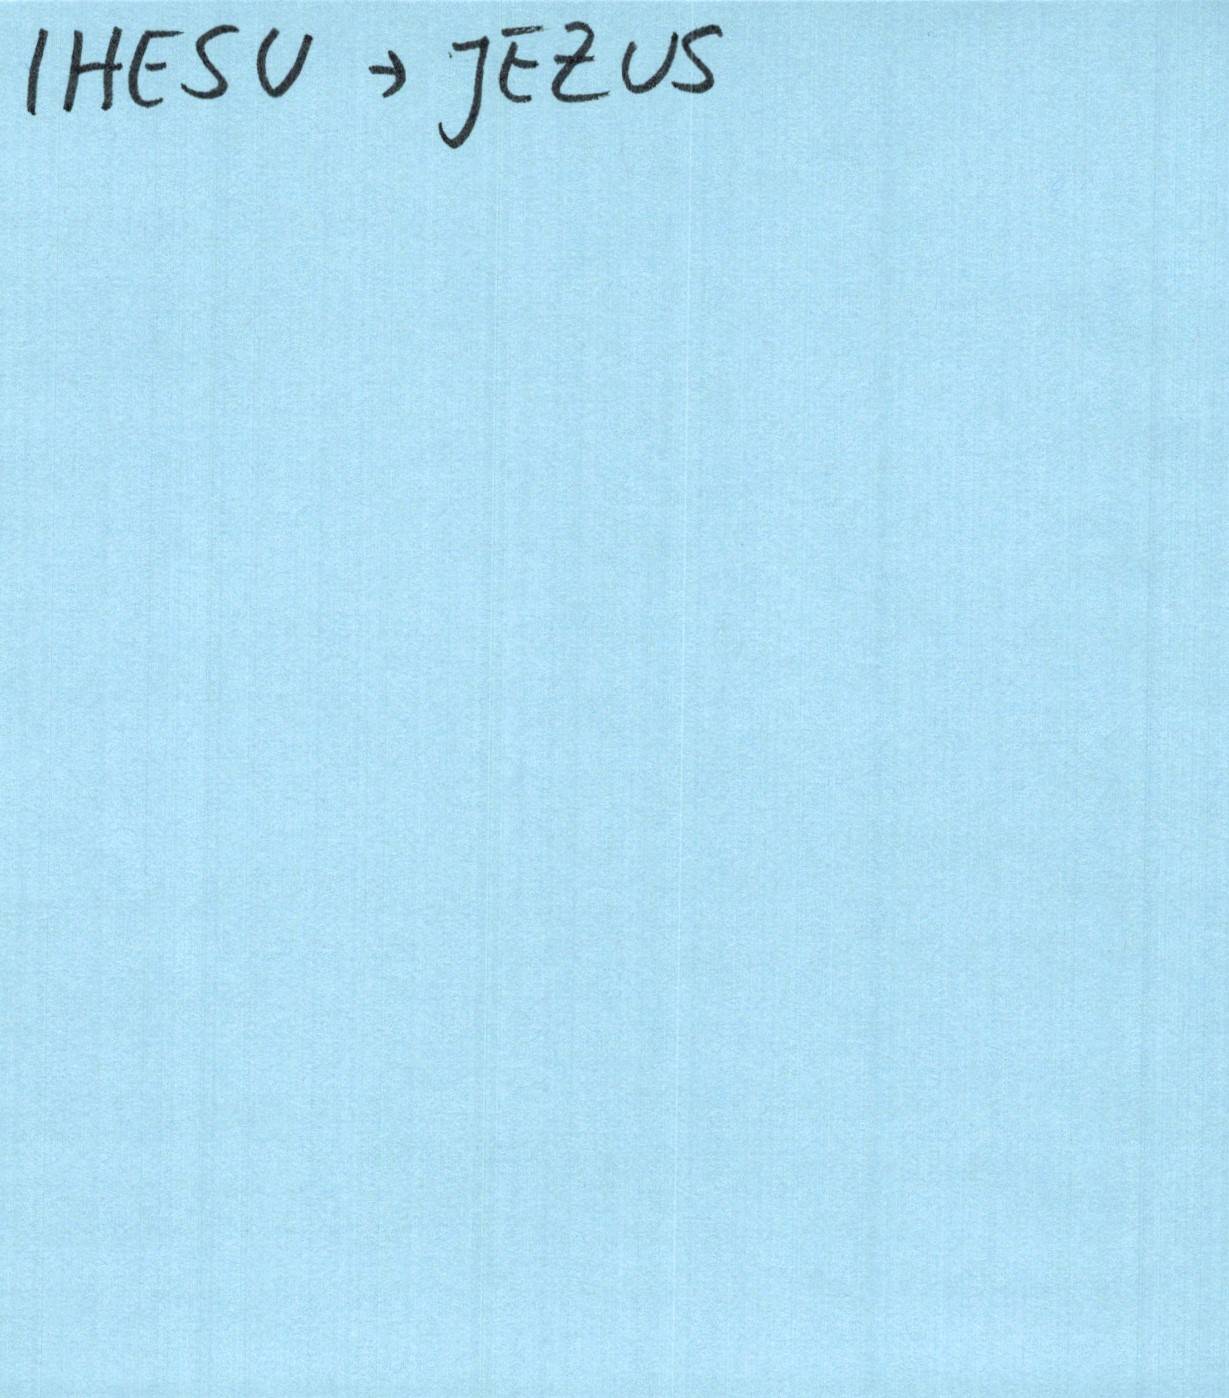 IHESU → JEZUS